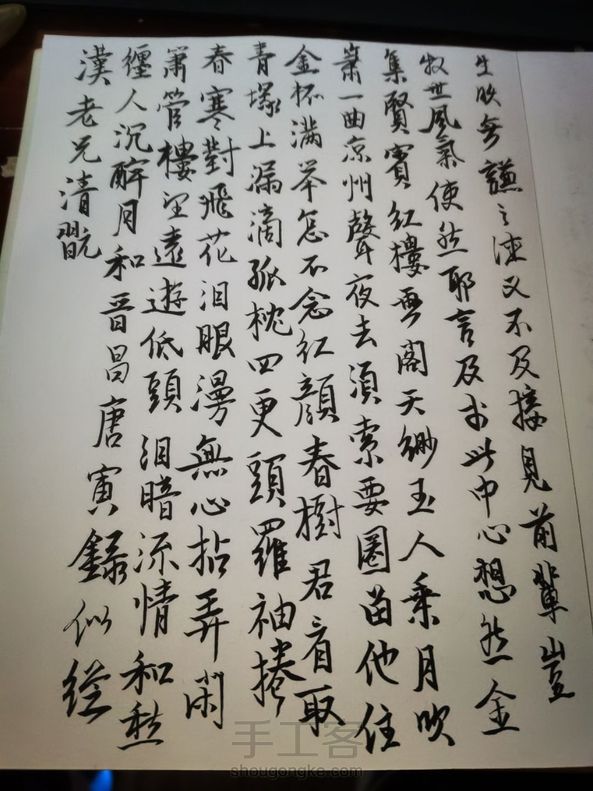 生無謙之又不及接見前輩豈
世風氣使然耶言及于此中心想然金
集賢賓紅樓畫閣天緲玉人乘月吹
簫一曲凉州聲夜去須索要圈留他住
金杯满莘怎不念紅顏春樹君看取
青塚上漏滴孤枕四更頭羅袖捲
春寒對飛花泪眼漫無心拈弄閑
簫管樓望遠遊低頭泪暗流情和愁
纏人沉醉月和晋昌唐寅録似從
漢老兄清翫
手工客
shougongke.com